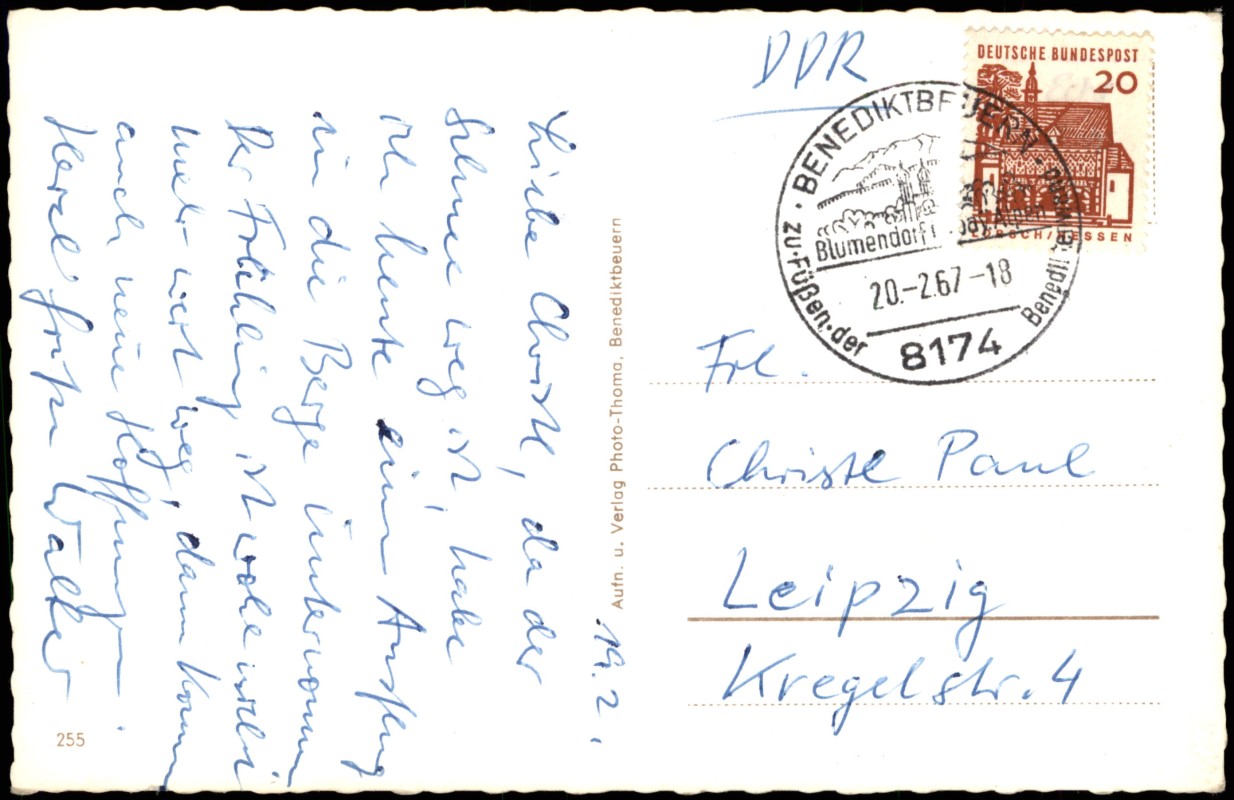 19.2.
Liebe Christl, da der
Schnee weg ist, habe
ich heute einen Ausflug
in die Berge unternommen
Der Frühling ist wohl
weg, dann kommt
auch neue Hoffnung.
Herzl. Grüße Walter
255
Aufn. u. Verlag Photo-Thoma, Benediktbeuern
DDR
DEUTSCHE BUNDESPOST
20
LORSCH/HESSEN
BENEDIKTBEUERN
Blumendorf
20.-2.67-18
zu·Füßen·der
8174
Frl.
Christl Paul
Leipzig
Kregelstr. 4